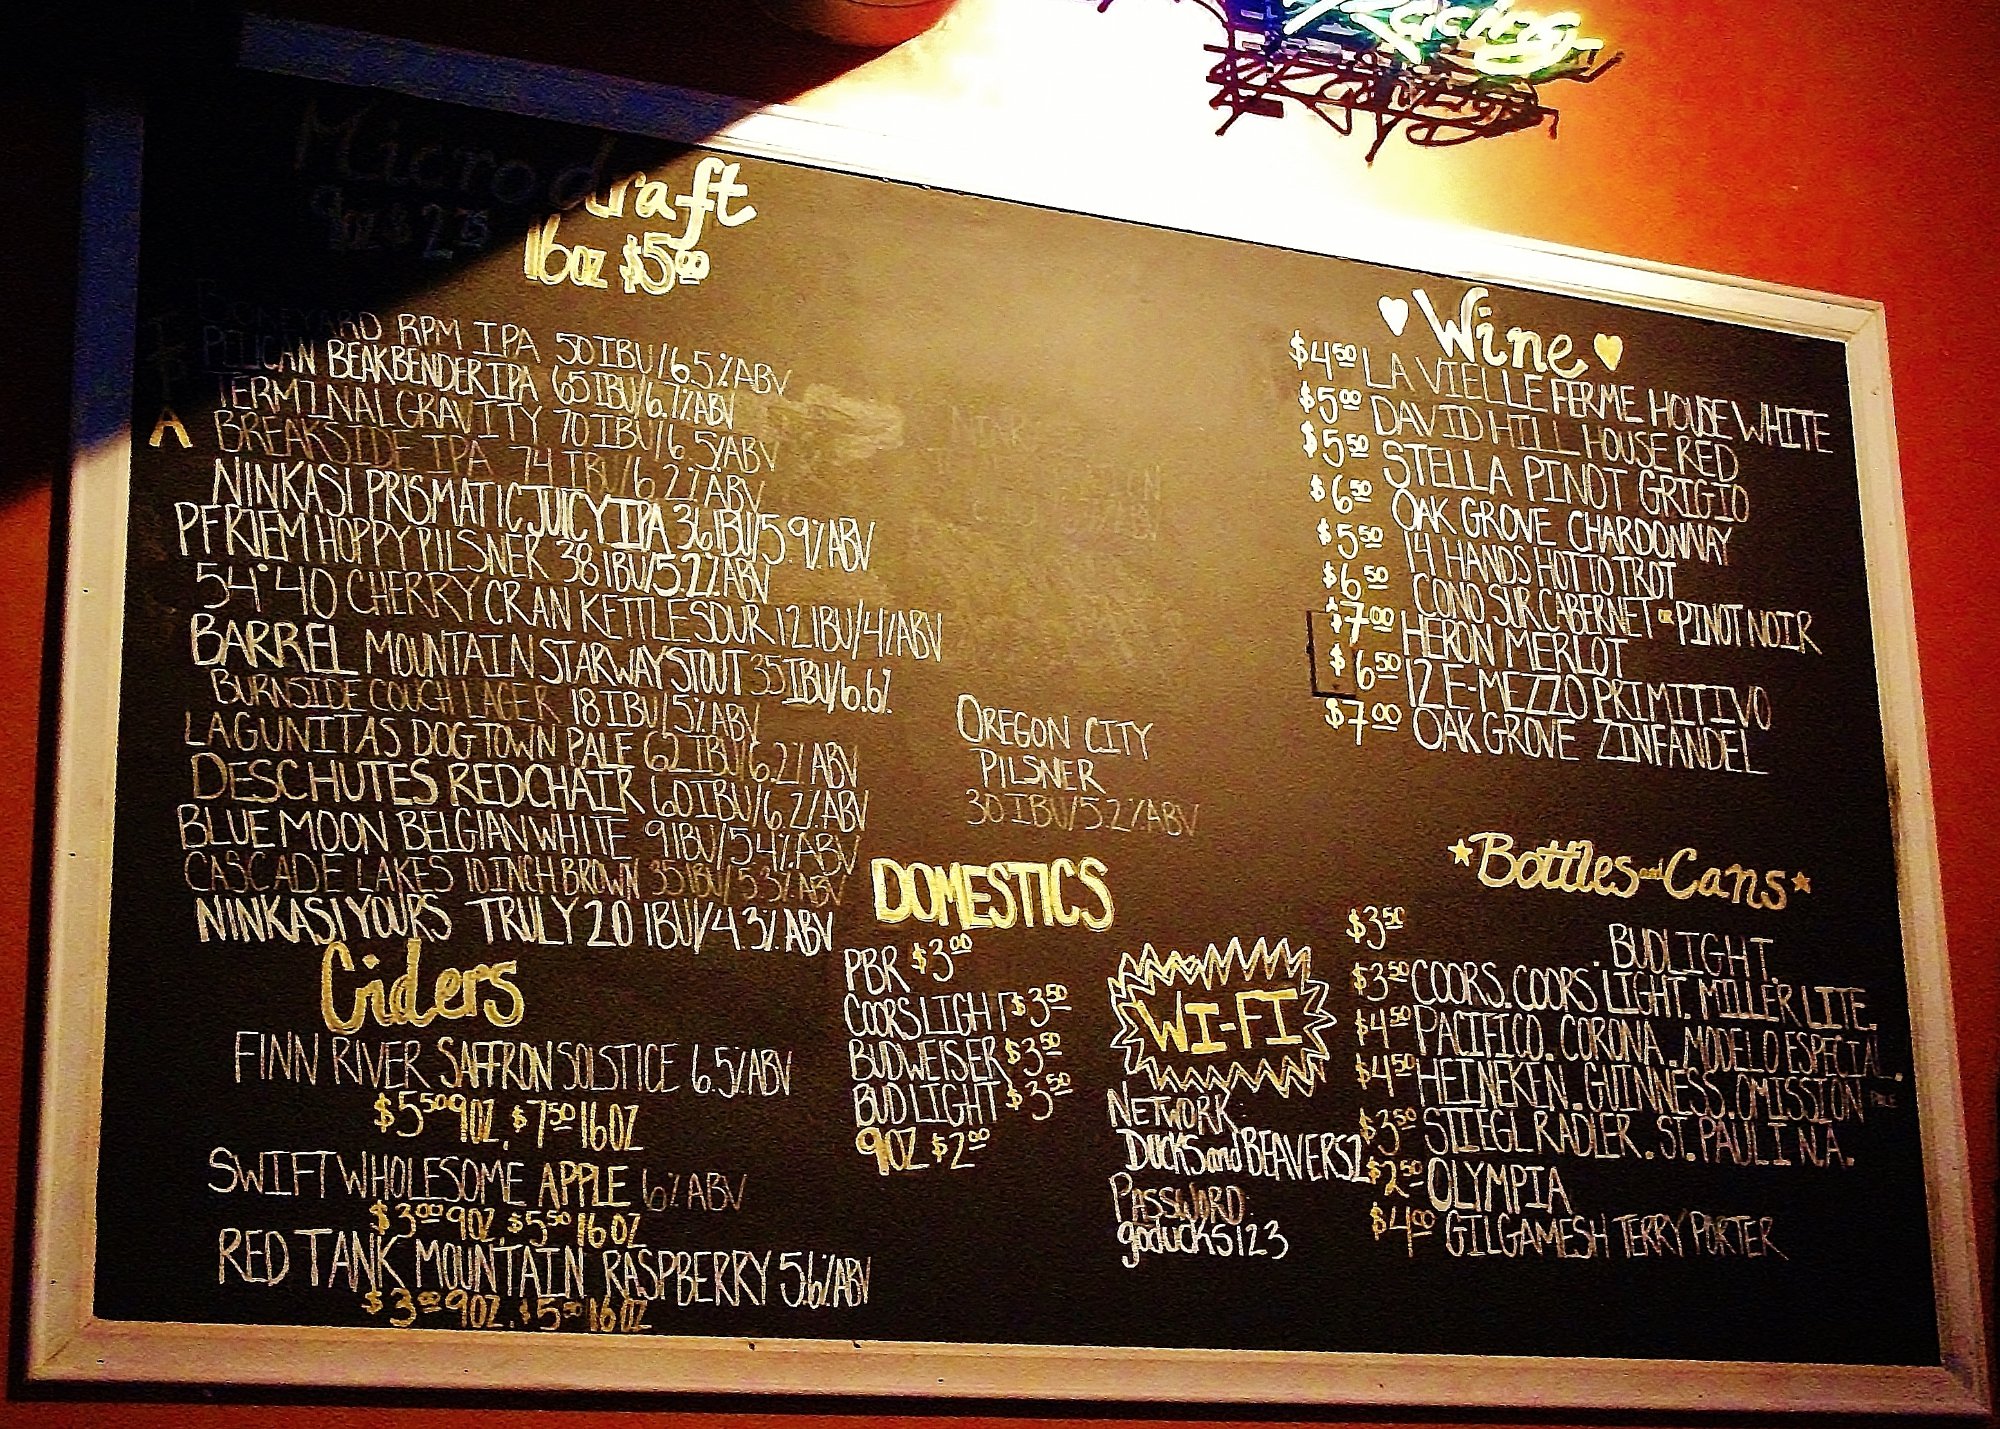 Racing
Microdraft
9oz $2.75
16oz $5.00
IPA
BONEYARD RPM IPA 50 IBU/6.5% ABV
PELICAN BEAKBENDER IPA 65 IBU/6.7% ABV
TERMINAL GRAVITY 70 IBU/6.5% ABV
BREAKSIDE IPA 74 IBU/6.2% ABV
NINKASI PRISMATIC JUICY IPA 36 IBU/5.9% ABV
PFRIEM HOPPY PILSNER 38 IBU/5.2% ABV
54°40 CHERRY CRAN KETTLE SOUR 12 IBU/4% ABV
BARREL MOUNTAIN STARWAY STOUT 35 IBU/6.6%
BURNSIDE COUCH LAGER 18 IBU/5% ABV
LAGUNITAS DOGTOWN PALE 62 IBU/6.2% ABV
DESCHUTES RED CHAIR 60 IBU/6.2% ABV
BLUE MOON BELGIAN WHITE 9 IBU/5.4% ABV
CASCADE LAKES 10 INCH BROWN 35 IBU/5.3% ABV
NINKASI YOURS TRULY 20 IBU/4.3% ABV
Ciders
FINN RIVER SAFFRON SOLSTICE 6.5% ABV
$5.50 9OZ, $7.50 16OZ
SWIFT WHOLESOME APPLE 6% ABV
$3.00 9OZ, $5.50 16OZ
RED TANK MOUNTAIN RASPBERRY 5.6% ABV
$3.00 9OZ, $5.50 16OZ
OREGON CITY
PILSNER
30 IBU/5.2% ABV
DOMESTICS
PBR $3.00
COORS LIGHT $3.50
BUDWEISER $3.50
BUD LIGHT $3.50
9OZ $2.00
WI-FI
NETWORK:
DUCKSandBEAVERS2
PASSWORD:
goducks123
Wine
$4.50 LA VIELLE FERME HOUSE WHITE
$5.00 DAVID HILL HOUSE RED
$5.50 STELLA PINOT GRIGIO
$6.50 OAK GROVE CHARDONNAY
$5.50 14 HANDS HOT TO TROT
$6.50 CONO SUR CABERNET or PINOT NOIR
$7.00 HERON MERLOT
$6.50 12 E-MEZZO PRIMITIVO
$7.00 OAK GROVE ZINFANDEL
Bottles and Cans
$3.50 . BUDLIGHT.
$3.50 COORS. COORS LIGHT. MILLER LITE.
$4.50 PACIFICO. CORONA. MODELO ESPECIAL.
$4.50 HEINEKEN. GUINNESS. OMISSION PALE
$3.50 STIEGL RADLER. ST. PAULI N.A.
$2.50 OLYMPIA
$4.00 GILGAMESH TERRY PORTER